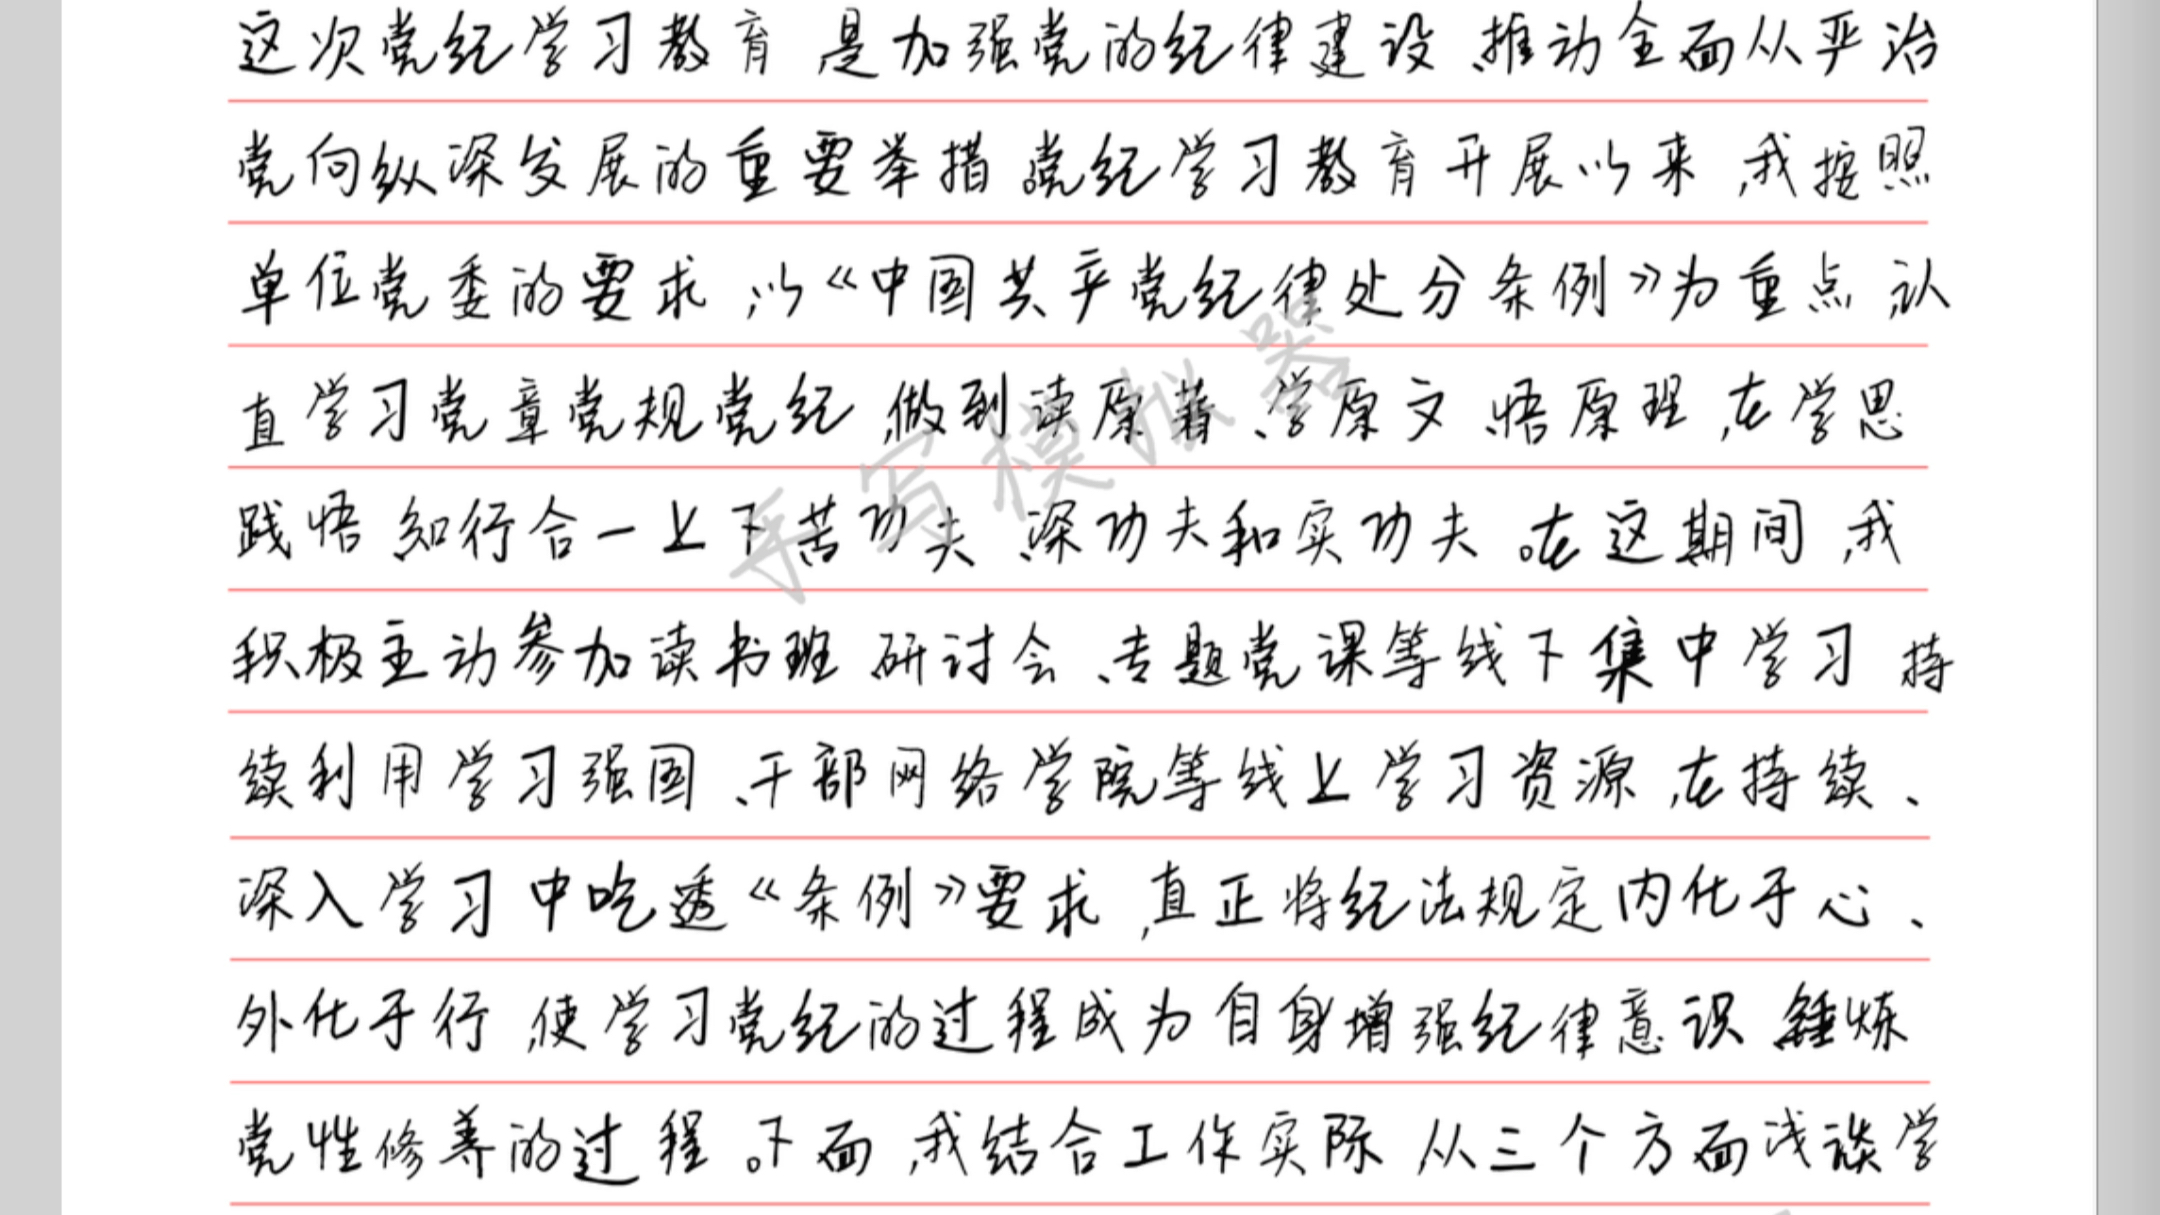 这次党纪学习教育 是加强党的纪律建设、推动全面从严治
党向纵深发展的重要举措。党纪学习教育开展以来,我按照
单位党委的要求,以《中国共产党纪律处分条例》为重点,认
直学习党章党规党纪,做到读原著、学原文、悟原理,在学思
践悟、知行合一上下苦功夫、深功夫和实功夫。在这期间,我
积极主动参加读书班、研讨会、专题党课等线下集中学习 持
续利用学习强国、干部网络学院等线上学习资源,在持续、
深入学习中吃透《条例》要求,直正将纪法规定内化于心、
外化于行,使学习党纪的过程成为自身增强纪律意识、锤炼
党性修养的过程。下面,我结合工作实际,从三个方面浅谈学
手写模拟器